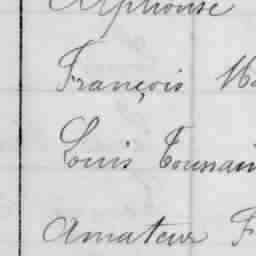 Alphonse
François
Louis Toussain
Amateur F